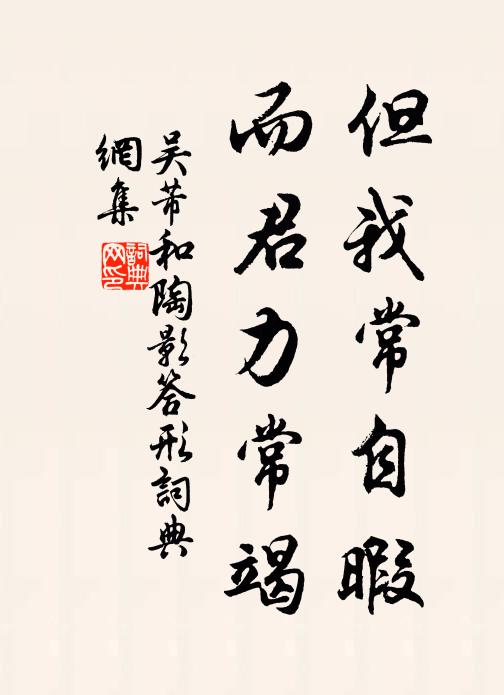 但我常自暇
而君力常竭
吴芾和陶影答形詞典
網集
詞典網印